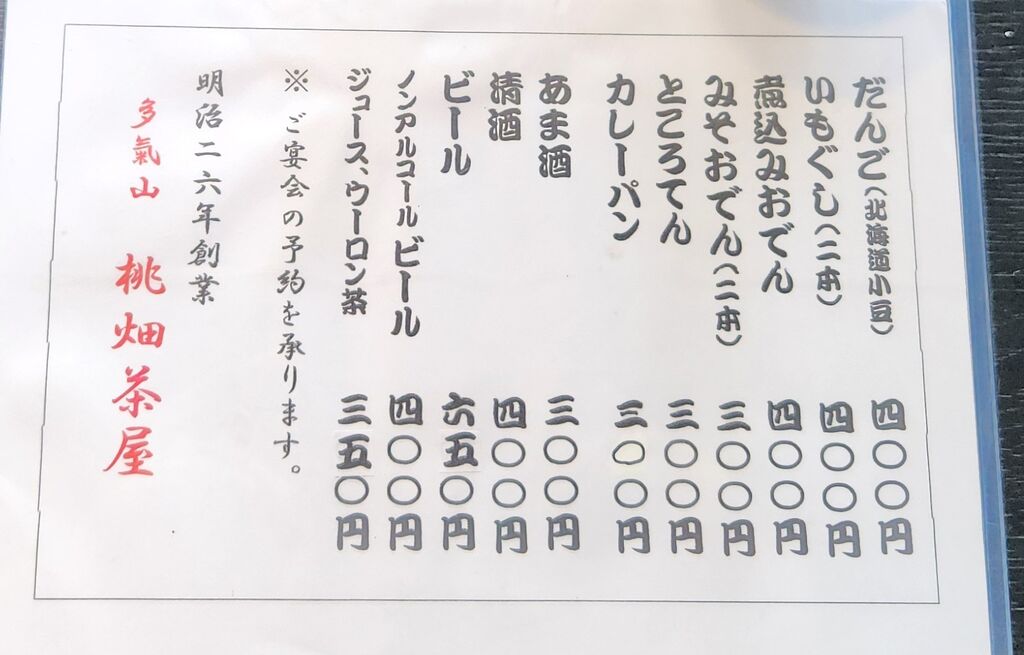 だんご(北海道小豆) 四〇〇円
いもぐし(二本) 四〇〇円
煮込みおでん 四〇〇円
みそおでん(二本) 三〇〇円
ところてん 三〇〇円
カレーパン 三〇〇円
あま酒 三〇〇円
清酒 四〇〇円
ビール 六五〇円
ノンアルコールビール 四〇〇円
ジュース、ウーロン茶 三五〇円
※ご宴会の予約を承ります。
明治二六年創業
多氣山 桃畑茶屋